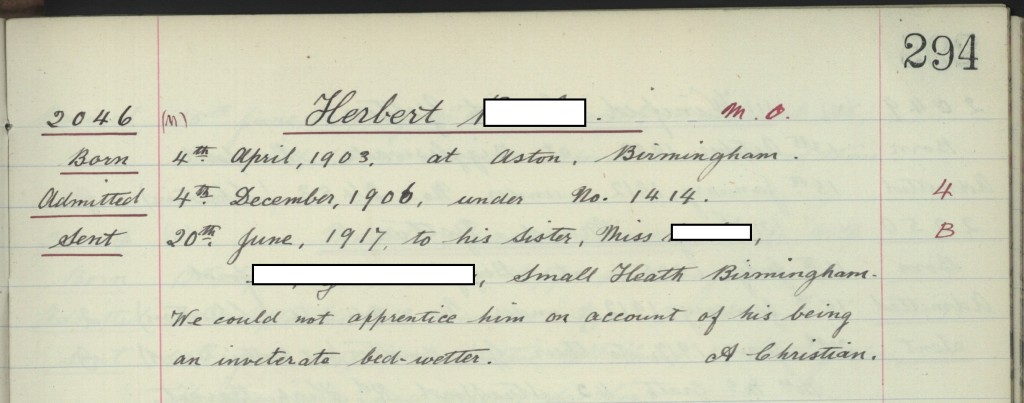 294
2046 (M) Herbert . M. O.
Born 4th April, 1903. at Aston, Birmingham.
Admitted 4th December, 1906, under No. 1414. 4
Sent 20th June, 1917, to his sister, Miss , B
, Small Heath Birmingham.
We could not apprentice him on account of his being
an inveterate bed-wetter. A Christian.